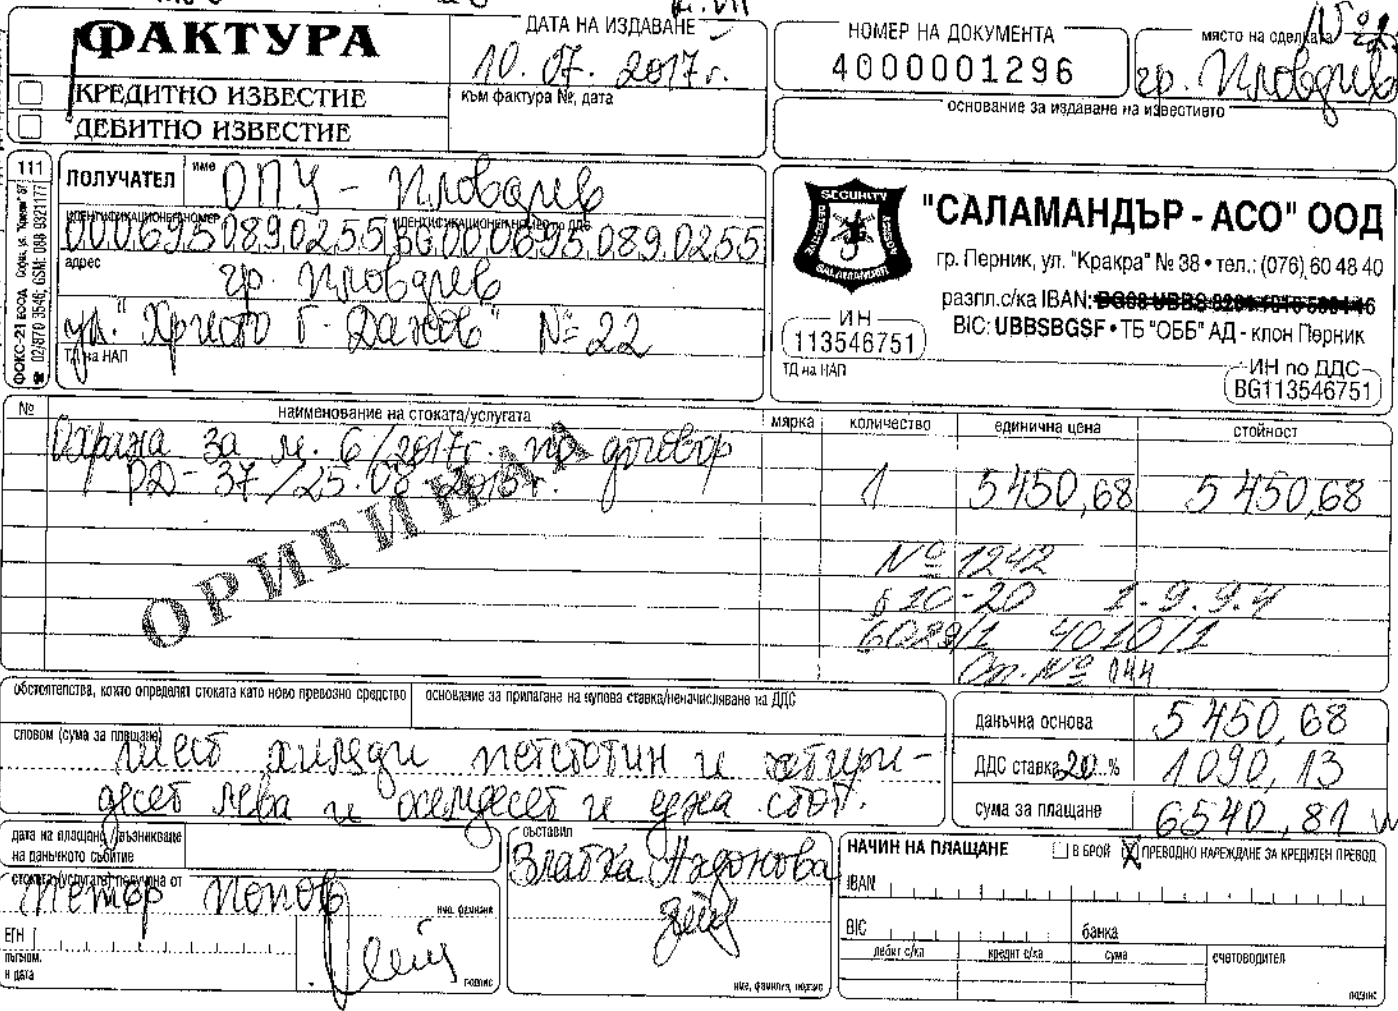 ФАКТУРА
КРЕДИТНО ИЗВЕСТИЕ
ДЕБИТНО ИЗВЕСТИЕ
ДАТА НА ИЗДАВАНЕ
10.07.2017г.
към фактура №, дата
НОМЕР НА ДОКУМЕНТА
4000001296
място на сделката
гр. Пловдив
основание за издаване на известието
111
ФОКС-21 ЕООД
ПОЛУЧАТЕЛ
име
ОПУ - Пловдив
ИДЕНТИФИКАЦИОНЕН НОМЕР
0006950890255
ИДЕНТИФИКАЦИОНЕН НОМЕР по ДДС
BG0006950890255
адрес
гр. Пловдив
ул. "Христо Г. Данов" № 22
ТД на НАП
SECURITY
SALAMANDER
"САЛАМАНДЪР - АСО" ООД
гр. Перник, ул. "Кракра" № 38 • тел.: (076) 60 48 40
разпл.с/ка IBAN:
BIC: UBBSBGSF • ТБ "ОББ" АД - клон Перник
ИН
113546751
ТД на НАП
ИН по ДДС
BG113546751
№
наименование на стоката/услугата
мярка
количество
единична цена
стойност
Охрана за м. 6/2017г. по договор
РД-37/25.08.2015г.
1
5450,68
5450,68
ОРИГИНАЛ
№ 1242
§ 10-20
1.9.9.4
6029/1 4010/1
Оп. № 044
обстоятелства, които определят стоката като ново превозно средство
основание за прилагане на нулева ставка/неначисляване на ДДС
словом (сума за плащане)
шест хиляди петстотин и четири-
десет лева и осемдесет и една стот.
данъчна основа
5450,68
ДДС ставка 20 %
1090,13
сума за плащане
6540,81
дата на плащане /възникване
на данъчното събитие
стоката (услугата) получена от
Петър Попов
име, фамилия
ЕГН
пълном.
и дата
подпис
съставил
Златка
име, фамилия, подпис
НАЧИН НА ПЛАЩАНЕ
В БРОЙ
ПРЕВОДНО НАРЕЖДАНЕ ЗА КРЕДИТЕН ПРЕВОД
IBAN
BIC
банка
дебит с/ка
кредит с/ка
сума
счетоводител
подпис